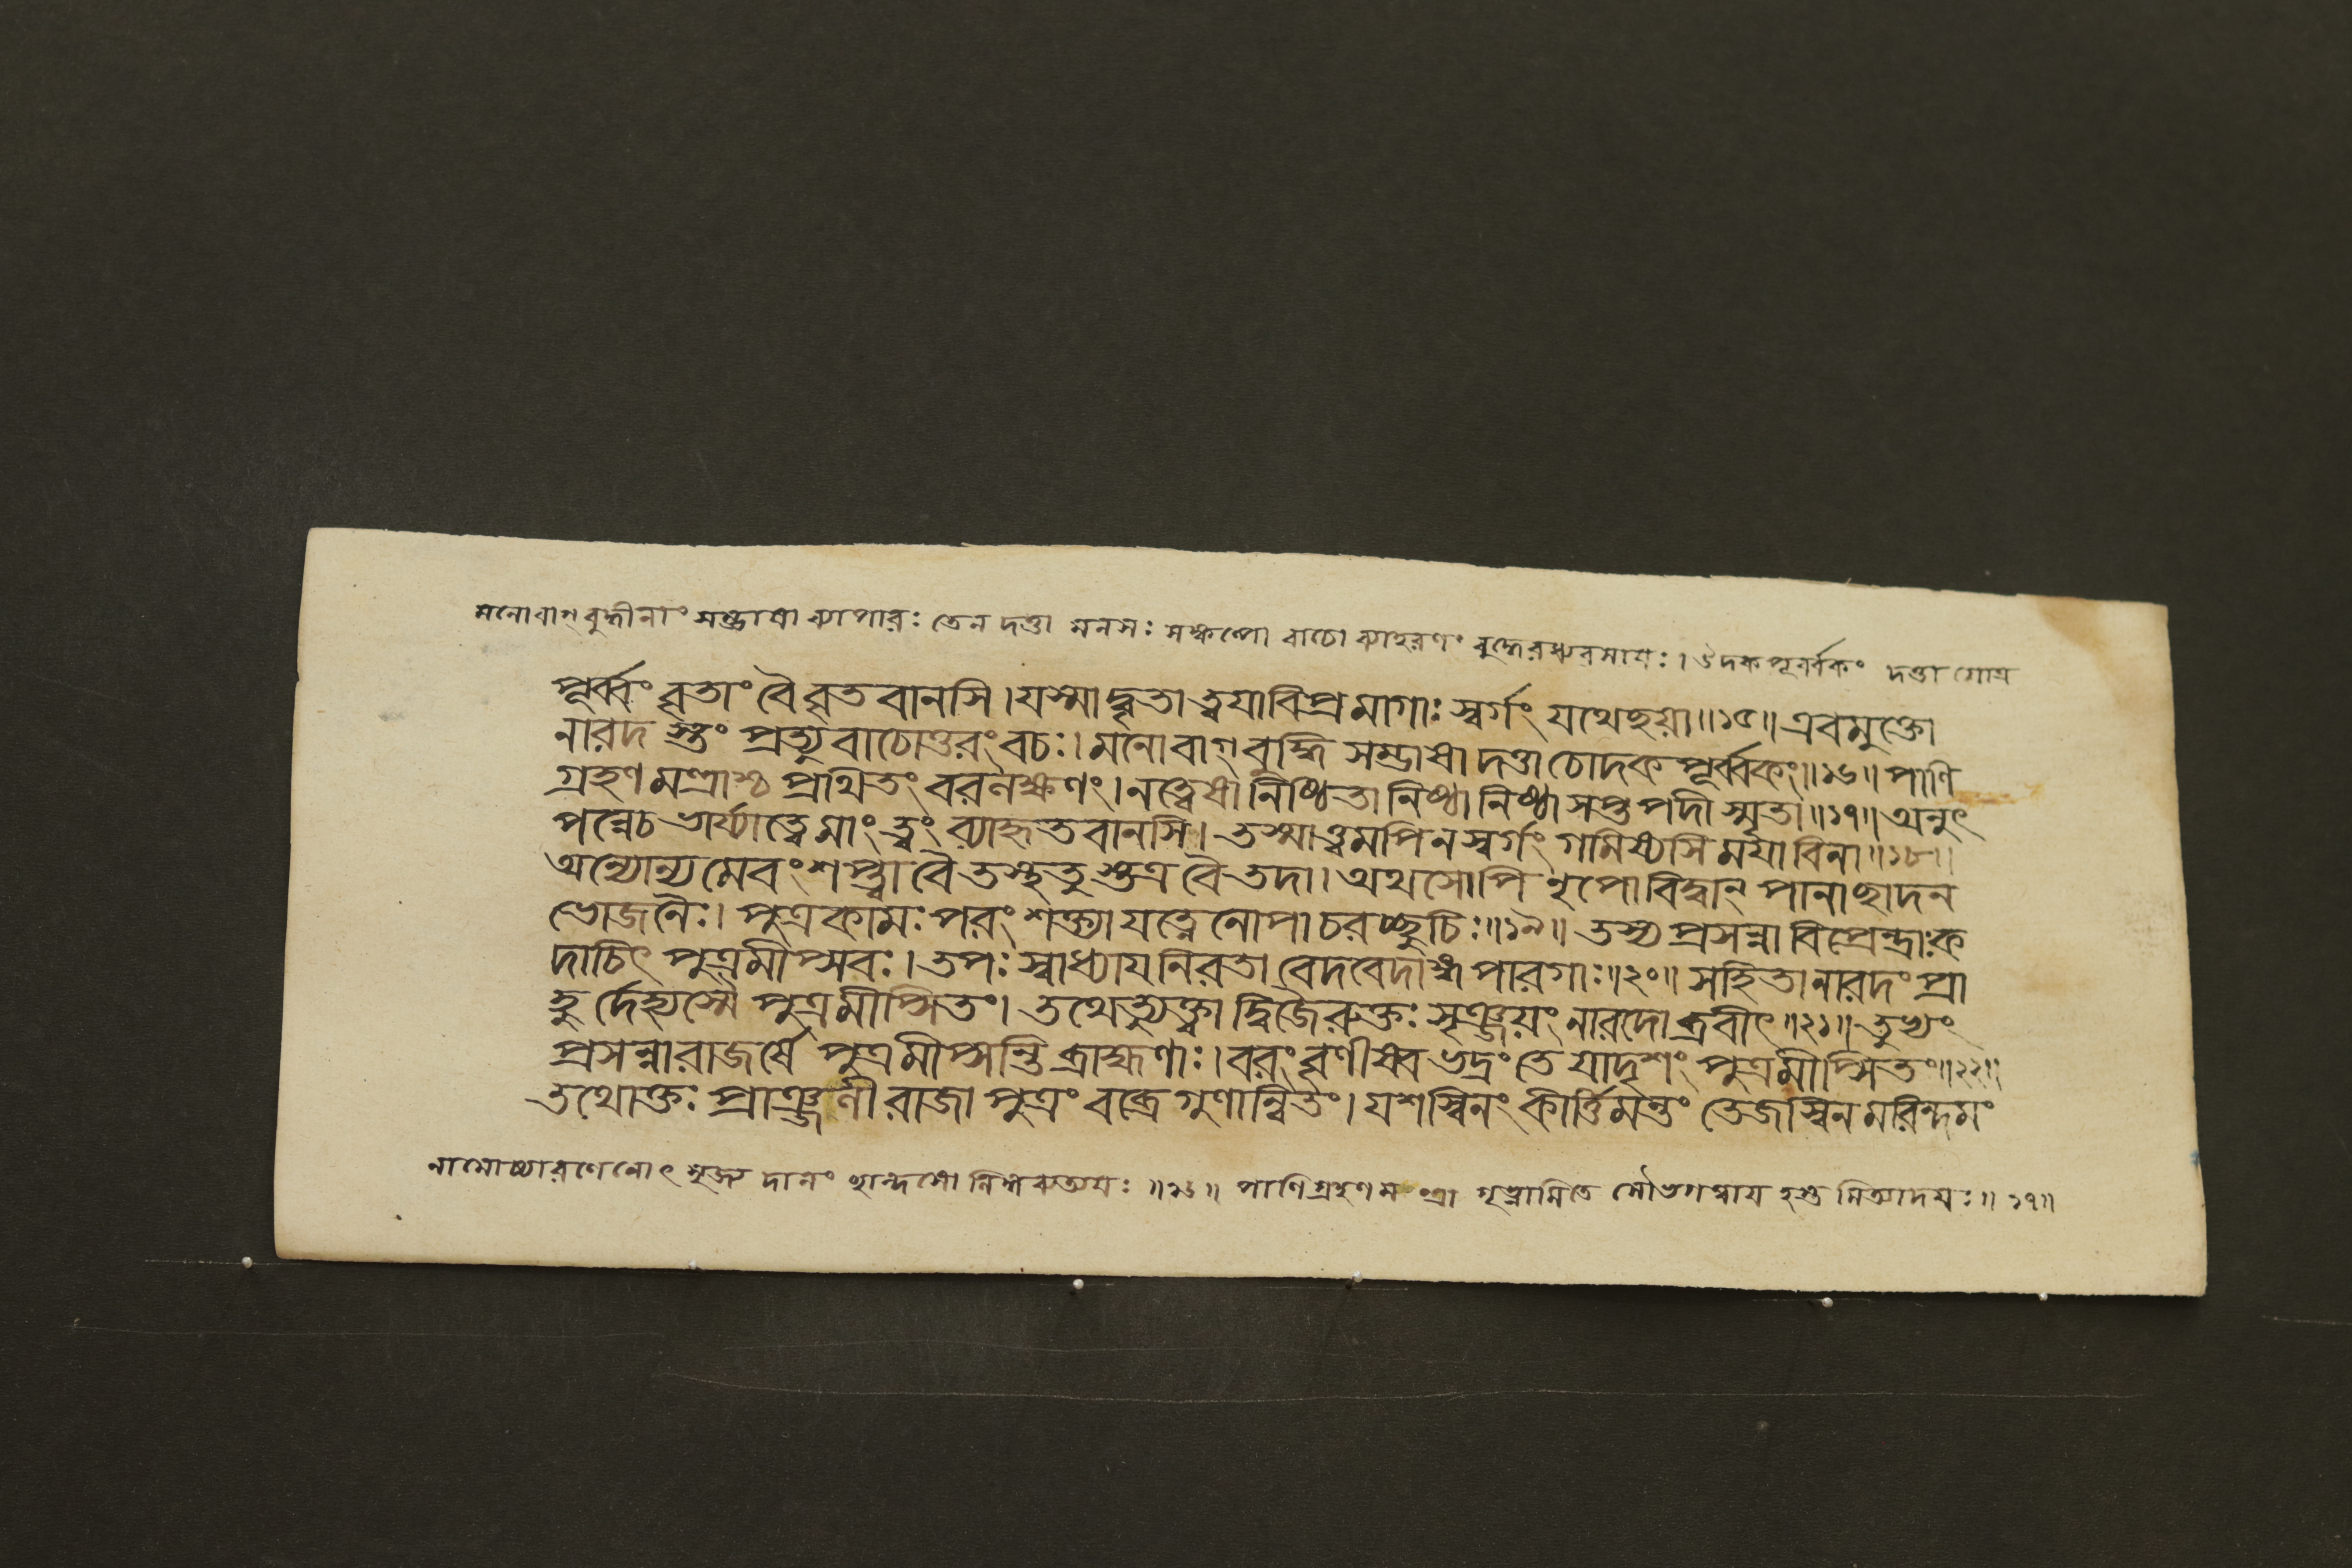 মনোবাগ্বুদ্ধীনাং সম্ভাষা ব্যাপারঃ তেন দত্তা মনসঃ সঙ্কল্পো বাচো ব্যাহরণং বুদ্ধেরধ্যবসায়ঃ। উদকপূর্ব্বকং দত্তা গোত্র
পূর্ব্বং বৃতাং বৈ বৃতবানসি।যস্মাদ্বৃতা ত্বয়াবিপ্রমাগাঃ স্বর্গং যথেছয়া॥১৫॥এবমুক্তো
নারদ স্তং প্রত্যুবাচোত্তরং বচঃ। মনোবাগ্বুদ্ধি সম্ভাষা দত্তা চোদক পূর্ব্বকং॥১৬॥ পাণি
গ্রহণ মন্ত্রাশ্চ প্রথিতং বরলক্ষণং।নত্বেষা নিষ্ঠিতা নিষ্ঠা নিষ্ঠা সপ্তপদী স্মৃতা॥১৭॥অনুৎ
পন্নেচ ভার্য্যাত্বে মাং ত্বং ব্যাহৃতবানসি। তস্মাত্ত্বমপিনস্বর্গং গমিষ্যসি ময়াবিনা॥১৮॥
অন্যোন্যমেবংশপ্ত্বা বৈ তস্থতুস্তত্র বৈ তদা। অথসোপি নৃপোবিদ্বান্ পানাছাদন
ভোজনৈঃ। পুত্রকামঃ পরং শক্ত্যা যত্নেনোপাচরচ্ছুচিঃ॥১৯॥ তস্য প্রসন্না বিপ্রেন্দ্রাঃক
দাচিৎ পুত্রমীপ্সবঃ। তপঃ স্বাধ্যায়নিরতা বেদবেদাঙ্গপারগাঃ॥২০॥ সহিতানারদং প্রা
হু র্দেহ্যস্মৈ পুত্রমীপ্সিতং। তথেত্যুক্ত্বা দ্বিজৈরুক্তঃ সৃঞ্জয়ং নারদোব্রবীৎ॥২১॥ তুভ্যং
প্রসন্নারাজর্ষে পুত্রমীপ্সন্তি ব্রাহ্মণাঃ। বরং বৃণীষ্ব ভদ্রং তে যাদৃশং পুত্রমীপ্সিতং॥২২॥
তথোক্তঃ প্রাঞ্জলী রাজা পুত্রং বব্রে গুণান্বিতং। যশস্বিনং কীর্ত্তিমন্তং তেজস্বিনমরিন্দমং
নামোচ্চারণেনোৎসৃজ্য দানং ॥১৬॥ পাণিগ্রহণমংত্রা গৃভ্ণামিতে সৌভগত্বায় হস্ত মিত্যাদয়ঃ॥১৭॥